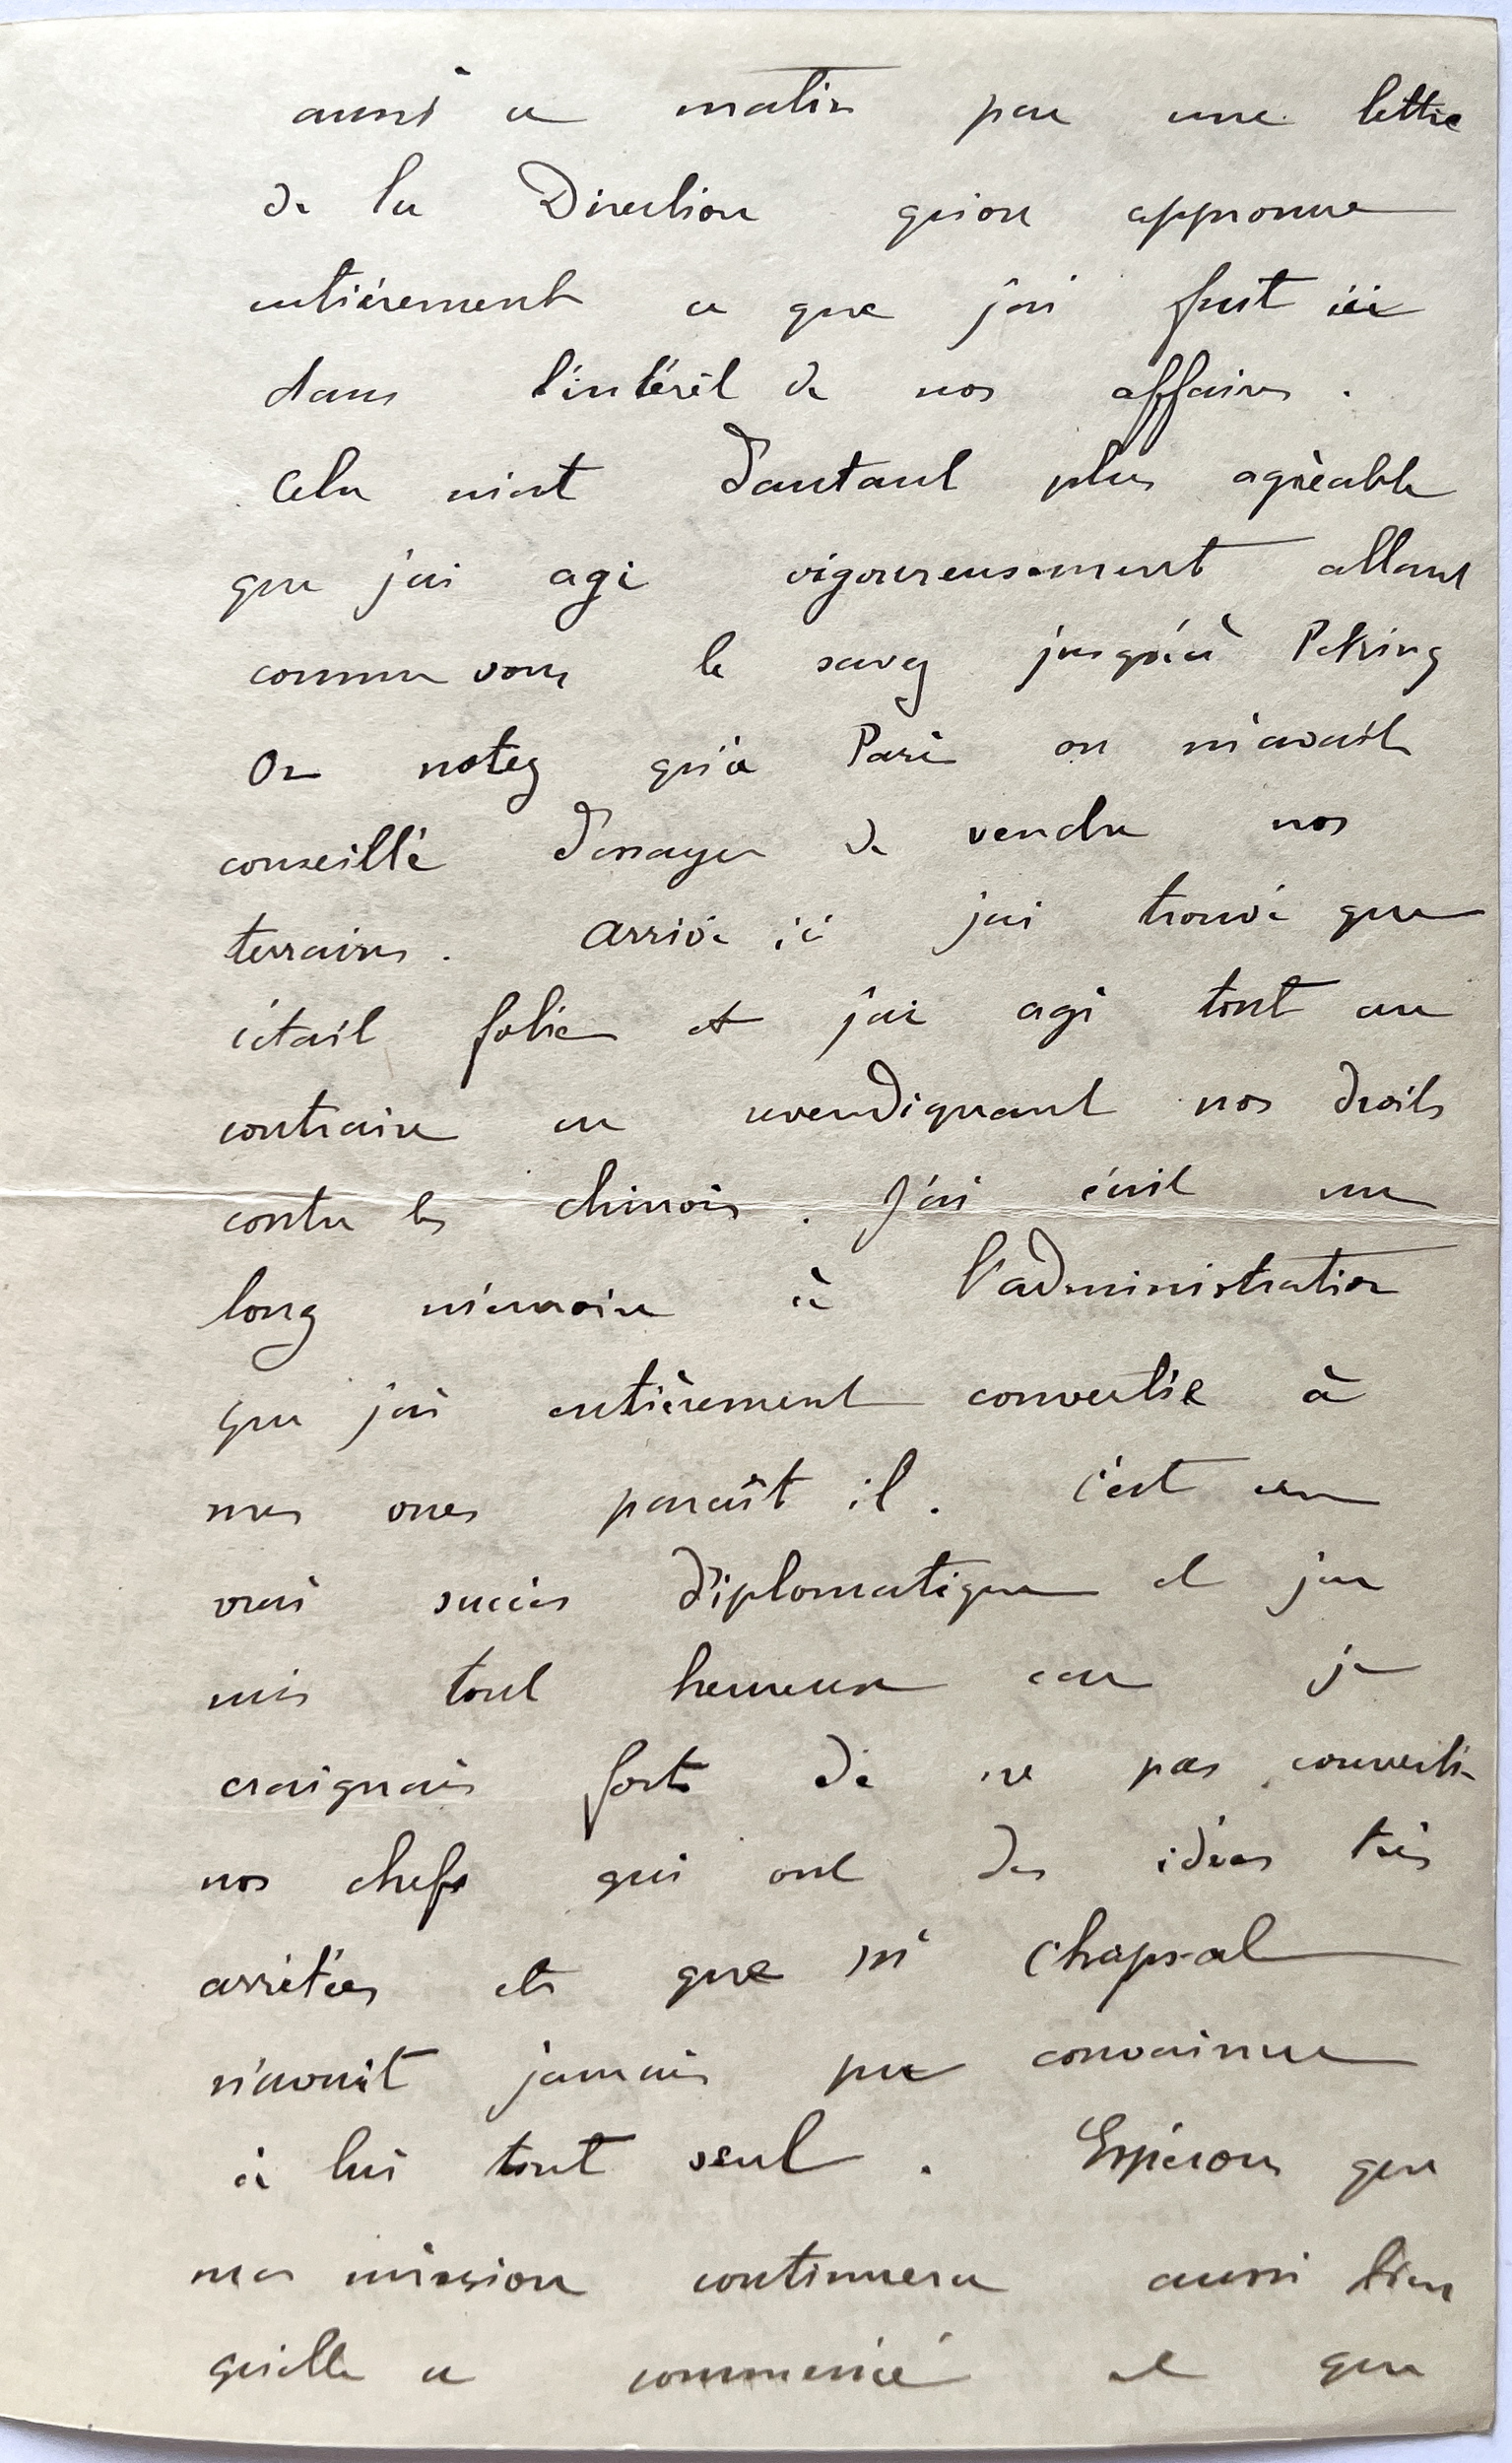 aussi ce matin par une lettre
de la Direction qu'on approuve
entièrement ce que j'ai fait ici
dans l'intérêt de nos affaires.
Cela m'est d'autant plus agréable
que j'ai agi vigoureusement allant
comme vous le savez jusqu'à Peking
Or notez qu'à Paris on m'avait
conseillé d'essayer de vendre nos
terrains. Arrivé ici j'ai trouvé que
c'était folie et j'ai agi tout au
contraire en revendiquant nos droits
contre les chinois. J'ai écrit un
long mémoire à l'administration
que j'ai entièrement convertie à
mes vues paraît il. C'est un
vrai succès diplomatique et j'en
suis tout heureux car je
craignais fort de ne pas convertir
nos chefs qui ont des idées très
arrêtées et que M Chapsal
n'avait jamais pu convaincre
à lui tout seul. Espérons que
ma mission continuera aussi bien
qu'elle a commencé et que